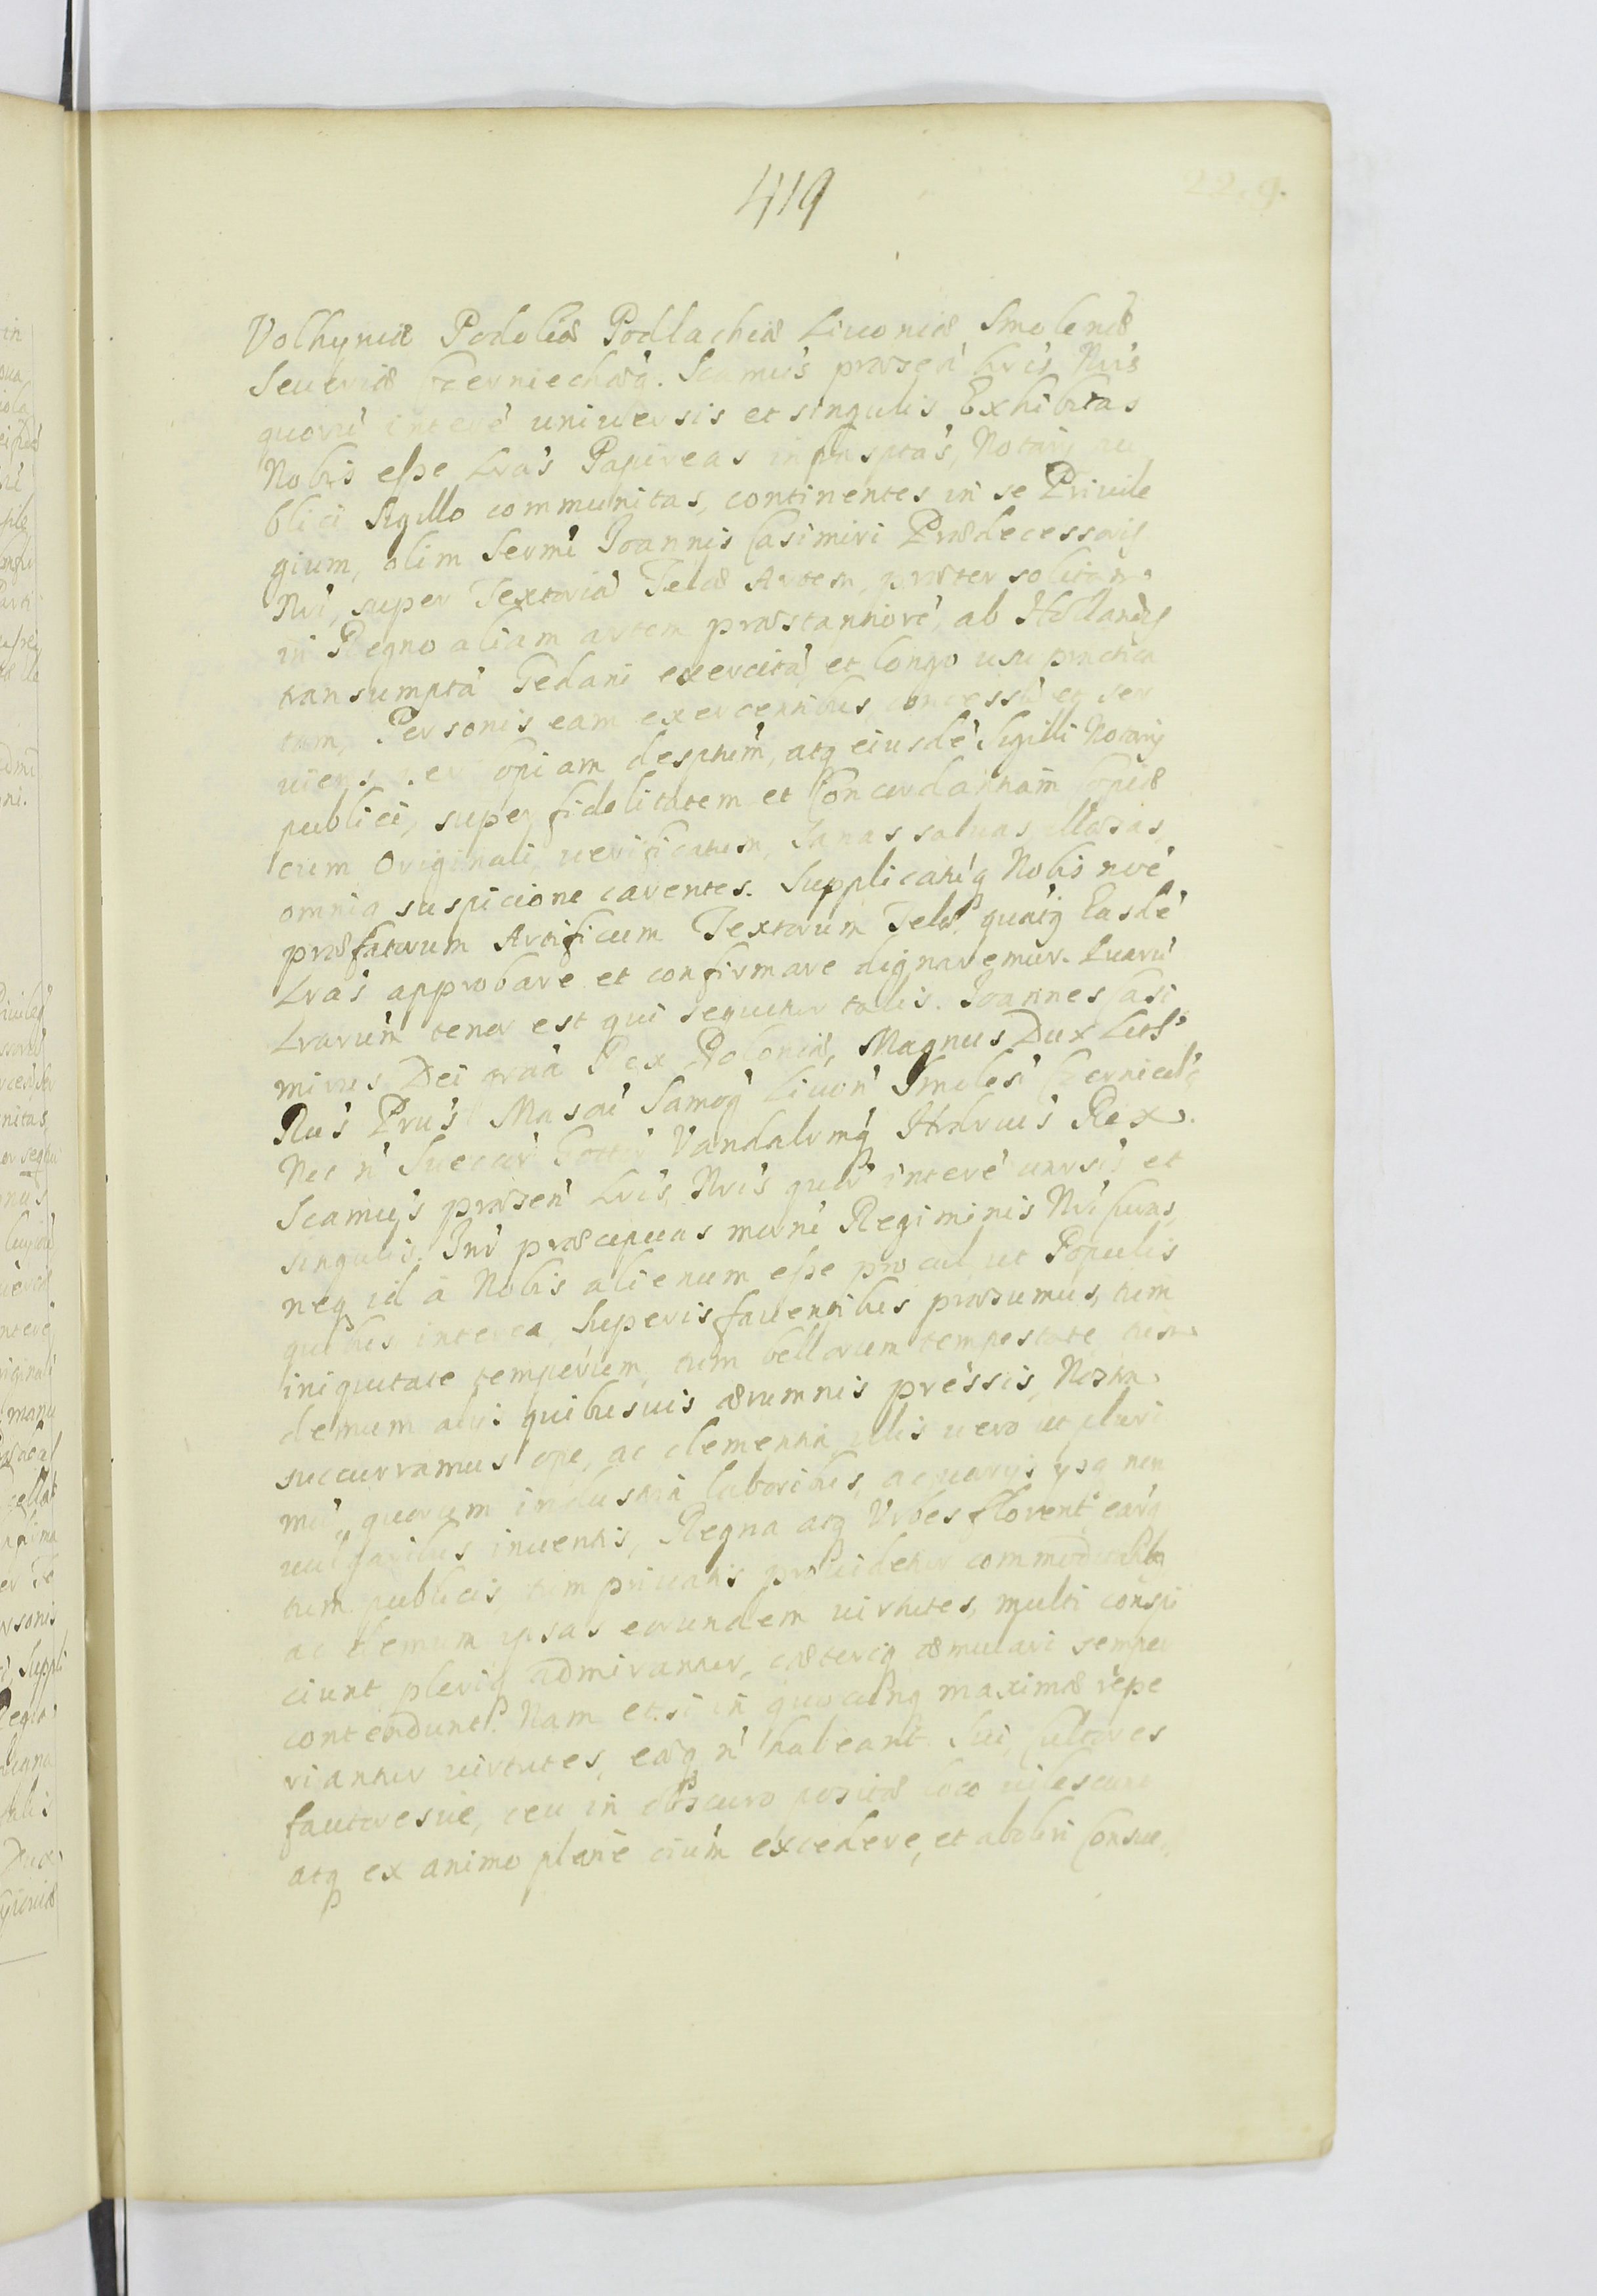 419
22. 9.
Volhyniæ Podoliæ Podlachiæ Liuoniæ Smolenæ
Seueriæ Czerniechæq́. Scamu's præsen' Lris Nris
quoru' intere' uniuersis et singulis Exhibitas
Nobis esse Lra's Papireas infrasptas, Notarij pu
blici Sigillo communitas, continentes in se Priuile
gium, olim Sermi Joannis Casimiri Prædecessoris
Nri, super Textoria' Telæ Artem, præter solitam
in Regno aliam artem præstantiore', ab Hollandis
transumpta' Gedani exercita' et longo usu practica
tam, Personis eam exercentibus concessu' et ser
uiens, per opiam desptum, atq eiusde' Sigilli Notarij
publici, super fidelitatem et Concordantiam Copiæ
cum Originali, uerificatum, Sanas saluas illæsas,
omniq suspicione carentes. Supplicatu'q Nobis noe'
præfatorum Artificum Textorum Telæ, quatq Easde'
Lra's approbare et confirmare dignaremur. Quaru'
Lrarum tenor est qui sequitur talis. Joannes Casi
mirus Dei gra'a Rex Poloniæ, Magnus Dux Litt'
Rus' Prus' Masou' Samog' Liuon' Smoles' Czerniech'q
Nec n' Suecor' Gottor' Vandalrmq' Hrdrius Rex.
Scamu's præsen' Lris, Nris quor' intere' unrsis et
singulis. Int' præcipuas muni' Regiminis Nri curas,
neq id à Nobis alienum esse procul, ut Populis
quibus interea, Superis fauentibus præsumus, tum
iniquitate temporum, tum bellorum tempestate, tum
demum alijs quibusuis ærumnis pressis, Nostra
succurramus ope, ac clementia illis uero ut pluri
mu', quorum industria laboribus, ac uarijs ijsq non
uulgaribus inuentis, Regna atq Urbes florent, ear'q
tum publicis, tum priuatis prouidetur commoditatib
ac demum ipsas eorundem uirtutes, multi conspi
ciunt, pleriq admirantur, cæteriq æmulari semper
contendunt. Nam etsi in quocunq maximæ repe
riantur uirtutes, eæq n' habeant Sui Cultores
fautoresue, ceu in obscuro positæ loco uilescunt
atq ex animo plane cium excedere, et aboleri Consue